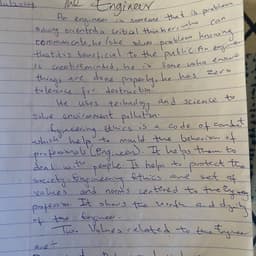 Engineer
An engineer is someone that is problem
solving oriented a critical thinker, who can
communicate, he/she solve problem knowing
that it is beneficial to the public. An engineer
is he is one who ensure
things are done properly, he has zero
tolerance for destruction.
He uses technology and science to
solve environment pollution.
Engineering Ethics is a code of conduct
which help to mould the behaviour of
professionals (Engineers). It helps them to
deal with people. Is help to protect the
society. Engineering Ethics are set of
values and norms centered to the
profession. It shows the worth and dignity
of the Engineer.
Two Values related to the Engineer
are:-